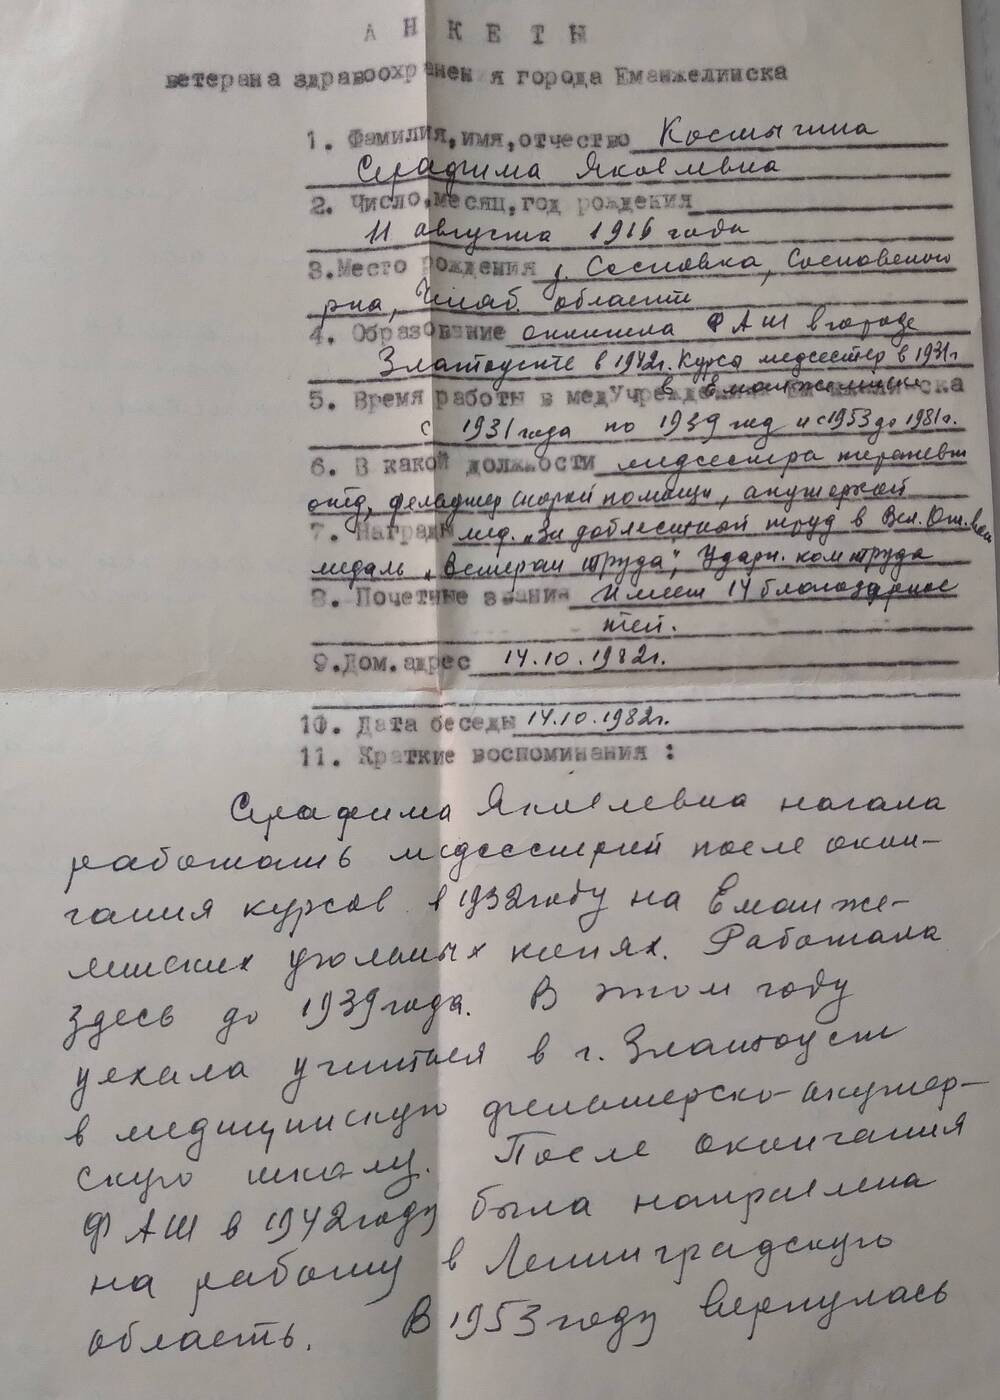 АНКЕТЫ
ветерана здравоохранения города Еманжелинска
1. Фамилия,имя,отчество Костыгина
Серафима Яковлевна
2. Число,месяц,год рождения
11 августа 1916 года
3.Место рождения д. Сосновка, Сосновского
р-на, Челяб. области
4. Образование окончила ФАШ в городе
Златоусте в 1942г. Курсы медсестер в 1931г
в Еманжелинске
5. Время работы в медУчреждениях Еманжелинска
с 1931 года по 1939 год и с 1953 до 1981г.
6. В какой должности медсестра терапевт
отд, фельдшер скорой помощи, акушеркой
7. Награды мед. „За доблестный труд в Вел. От. вой
медаль „Ветеран труда", Ударн. ком труда
8. Почетные звания Имеет 14 благодарнос
тей.
9.Дом.адрес 14.10.1982г.
10. Дата беседы 14.10.1982г.
11. Краткие воспоминания :
Серафима Яковлевна начала
работать медсестрой после окон-
чания курсов в 1932 году на Еманже-
линских угольных копях. Работала
здесь до 1939 года. В этом году
уехала учиться в г. Златоуст
в медицинскую фельдшерско-акушер-
скую школу. После окончания
ФАШ в 1942 году была направлена
на работу в Ленинградскую
область. В 1953 году вернулась